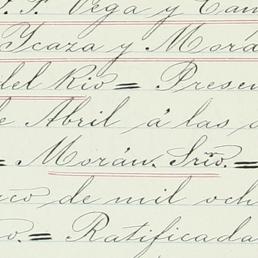 F. Vega y Cam
Ycaza y Morá
del Rio = Presen
e Abril á las d
= Morán. Srio. =
co de mil och
o. = Ratificada